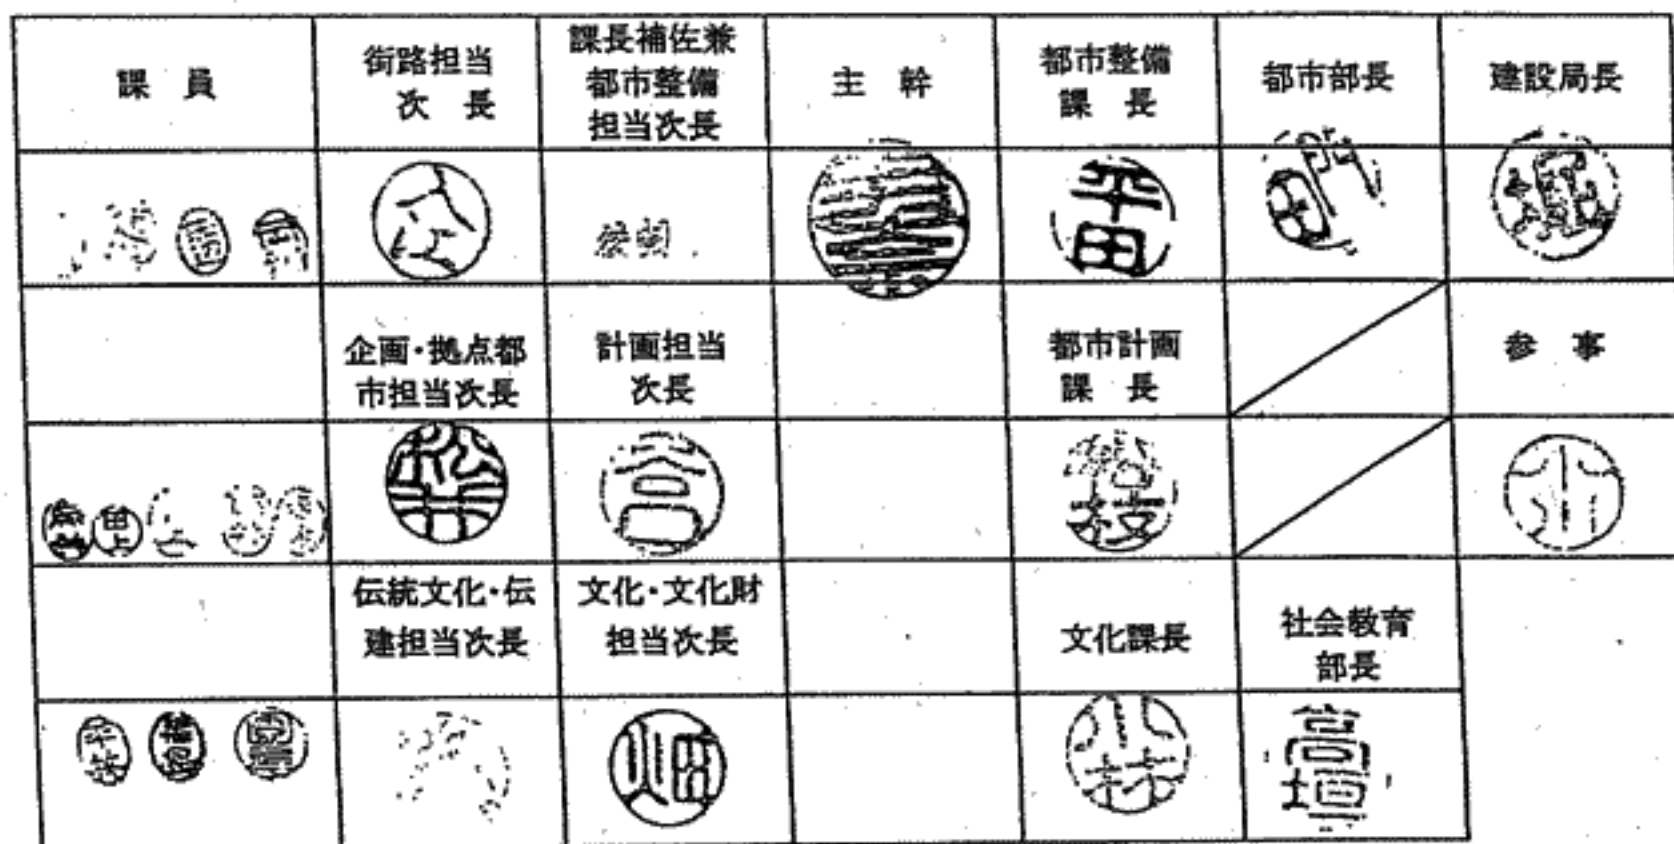 課 員
街路担当
次 長
課長補佐兼
都市整備
担当次長
主 幹
都市整備
課 長
都市部長
建設局長
平田
企画・拠点都
市担当次長
計画担当
次長
都市計画
課 長
参 事
田上
松井
宮
伝統文化・伝
建担当次長
文化・文化財
担当次長
文化課長
社会教育
部長
畑
小林
高垣